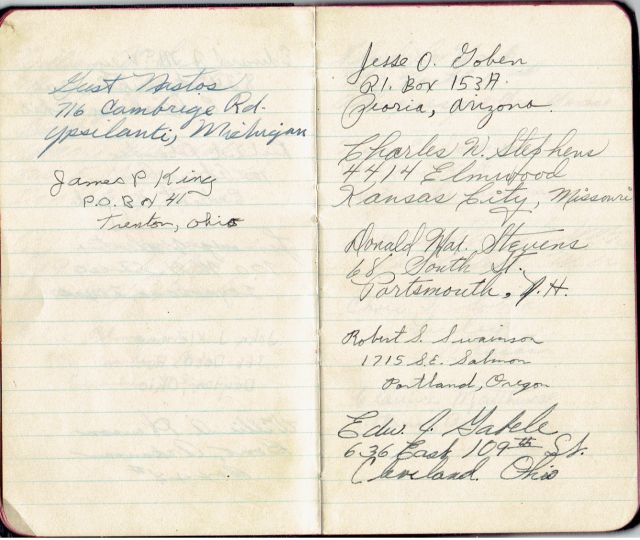 Gust Nastos
716 Cambrige Rd.
Ypsilanti, Michigan
James P King
P.O. Box 41
Trenton, Ohio
Jesse O. Goben
R1. Box 153A.
Peoria, Arizona.
Charles N. Stephens
4414 Elmwood
Kansas City, Missouri
Donald Mac Stevens
68 South St.
Portsmouth, N.H.
Robert S. Swainson
1715 S.E. Salmon
Portland, Oregon
Edw. J. Gabele
636 East 109th St.
Cleveland. Ohio